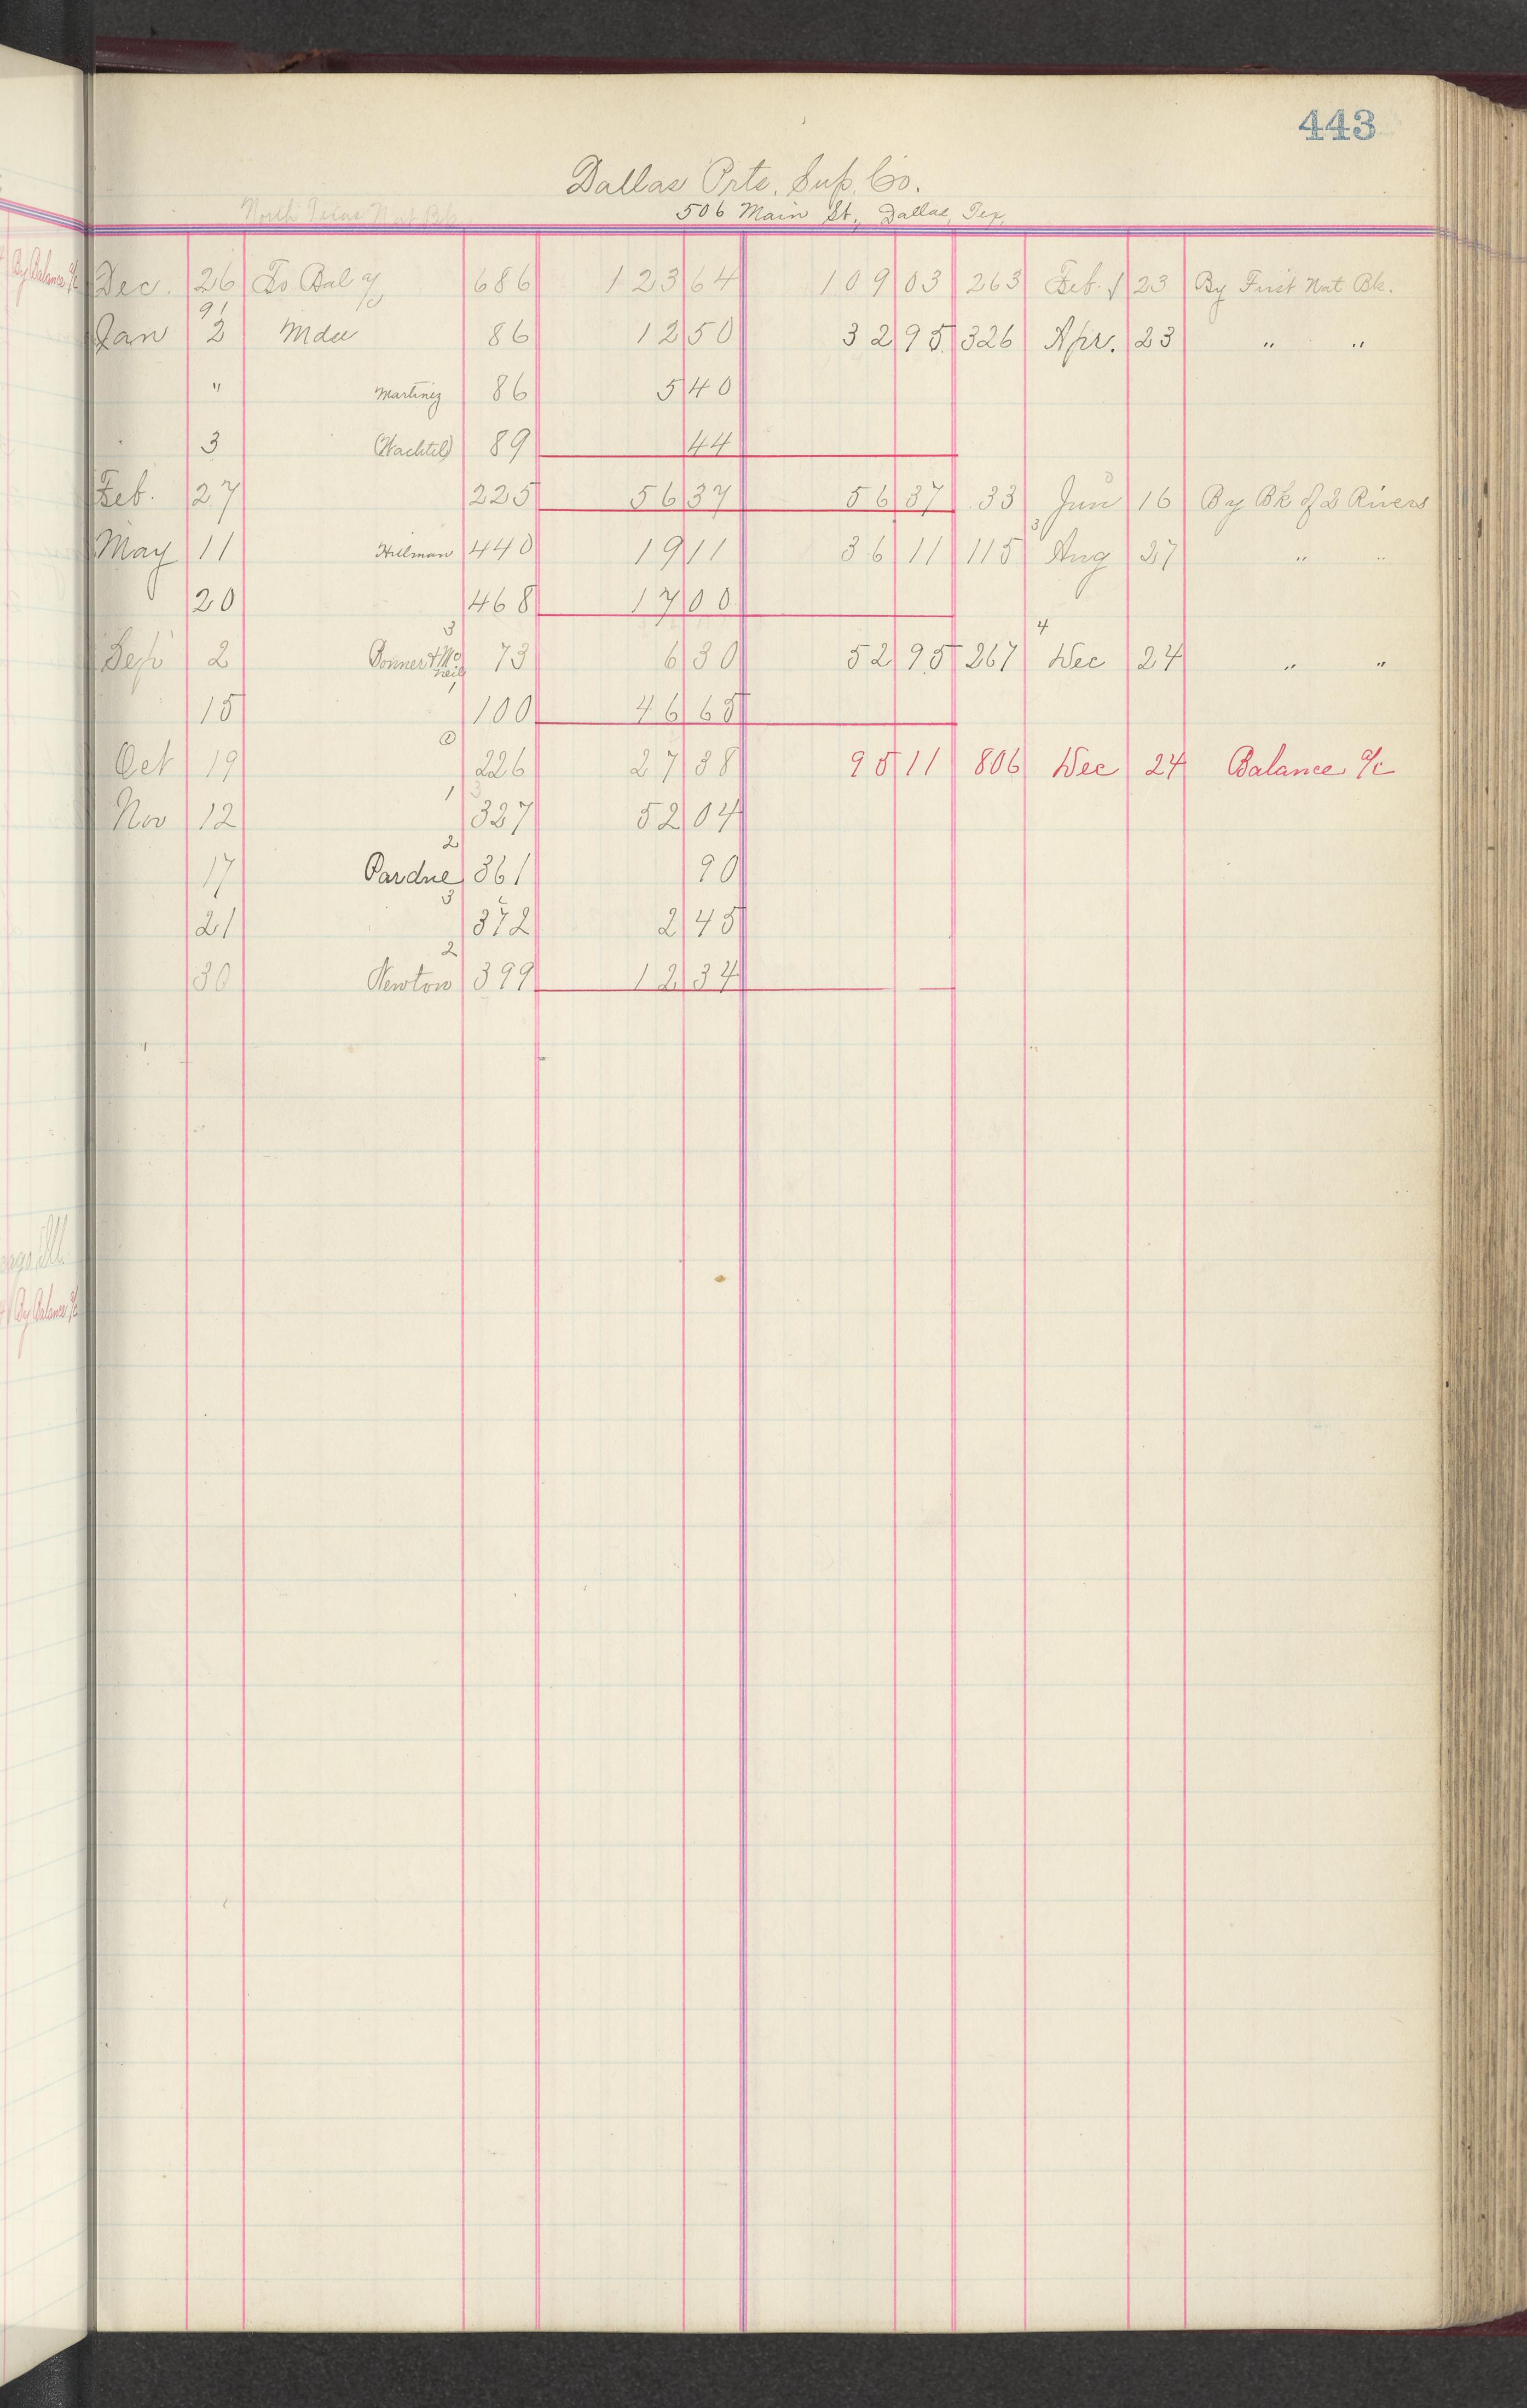 443
Dallas Prtr. Sup. Co.
North Texas Nat Bk.
506 Main St., Dallas, Tex.
Dec. 26 To Bal a/c 686 123 64 109 03 263 Feb. 23 By First Nat Bk.
91
Jan 2 Mdse 86 12 50 32 95 326 Apr. 23 " "
" Martinez 86 5 40
3 (Wachtel) 89 44
Feb. 27 225 56 37 56 37 33 Jun 16 By Bk of 2 Rivers
May 11 Hillman 440 19 11 36 11 115 3 Aug 27 " "
20 468 17 00
Sep 2 Bonner + McNeil 3 73 6 30 52 95 267 4 Dec 24 " "
15 1 100 46 65
Oct 19 226 27 38 95 11 806 Dec 24 Balance a/c
Nov 12 1 327 52 04
17 Pardue 2 361 90
21 3 372 2 45
30 Newton 2 399 12 34
By Balance a/c
By Balance a/c